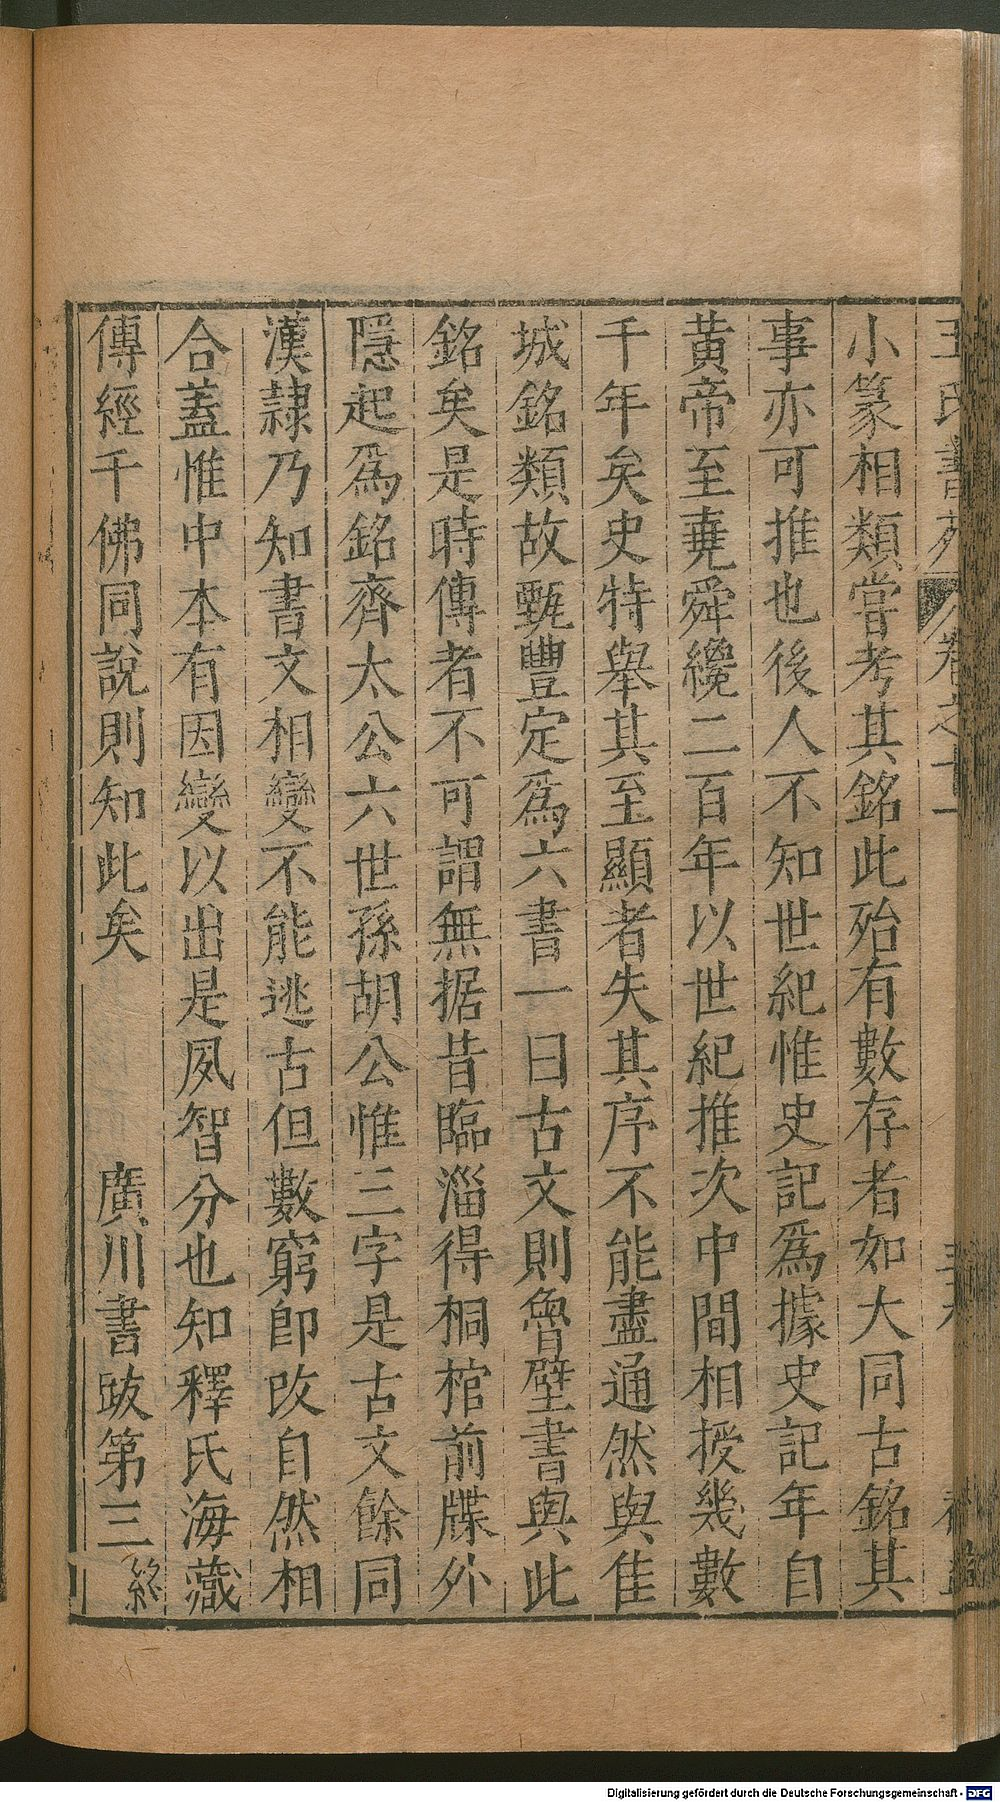 王氏書苑 卷之十一
小篆相類嘗考其銘此殆有數存者如大同古銘其
事亦可推也後人不知世紀惟史記爲據史記年自
黃帝至堯舜纔二百年以世紀推次中間相授幾數
千年矣史特舉其至顯者失其序不能盡通然與隹
城銘類故甄豐定爲六書一曰古文則魯壁書與此
銘矣是時傳者不可謂無据昔臨淄得桐棺前牒外
隱起爲銘齊太公六世孫胡公惟三字是古文餘同
漢隷乃知書文相變不能逃古但數窮即改自然相
合蓋惟中本有因變以出是夙智分也知釋氏海藏
傳經千佛同說則知此矣 廣川書跋第三終
Digitalisierung gefördert durch die Deutsche Forschungsgemeinschaft - DFG